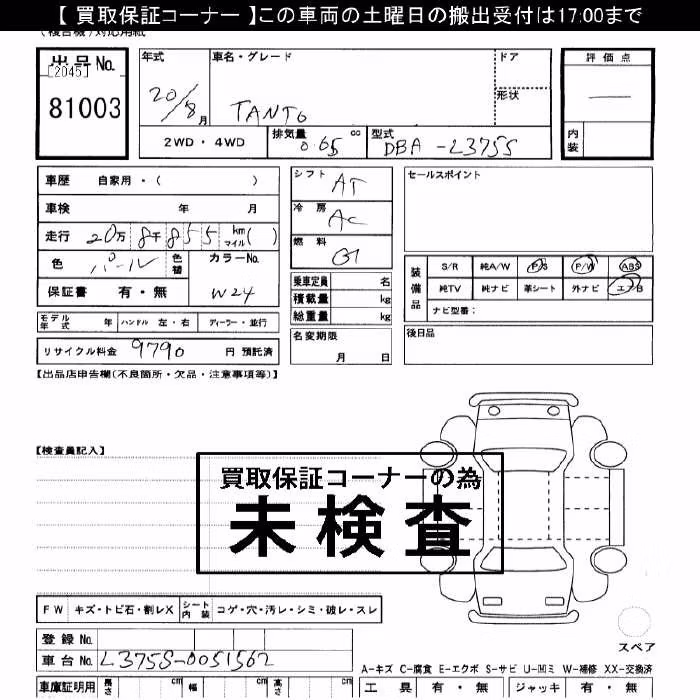 【 買取保証コーナー 】この車両の土曜日の搬出受付は17:00まで
(複合機)対応用紙
出品No.
[2045]
81003
年式 車名・グレード ドア
20/8月 TANTO 形状
2WD・4WD 排気量 0.65 cc 型式 DBA-L375S
評価点
—
内装
車歴 自家用・( )
車検 年 月
走行 20万 8千 855 km マイル( )
色 パール 色替 カラーNo.
保証書 有・無 W24
モデル年式 年 ハンドル 左・右 ディーラー・並行
リサイクル料金 9790 円 預託済
シフト AT
冷房 AC
燃料 G
乗車定員 名
積載量 kg
総重量 kg
名変期限
月 日
セールスポイント
装備品 S/R 純A/W P/S P/W ABS
純TV 純ナビ 革シート 外ナビ エアB
ナビ型番:
後日品
【出品店申告欄(不良箇所・欠品・注意事項等)】
【検査員記入】
買取保証コーナーの為
未検査
FW キズ・トビ石・割レX シート内装 コゲ・穴・汚レ・シミ・破レ・スレ
スペア
登録No.
車台No. L375S-0051562
A-キズ C-腐食 E-エクボ S-サビ U-凹ミ W-補修 XX-交換済
車庫証明用 長さ cm 幅 cm 高さ cm 工具 有・無 ジャッキ 有・無